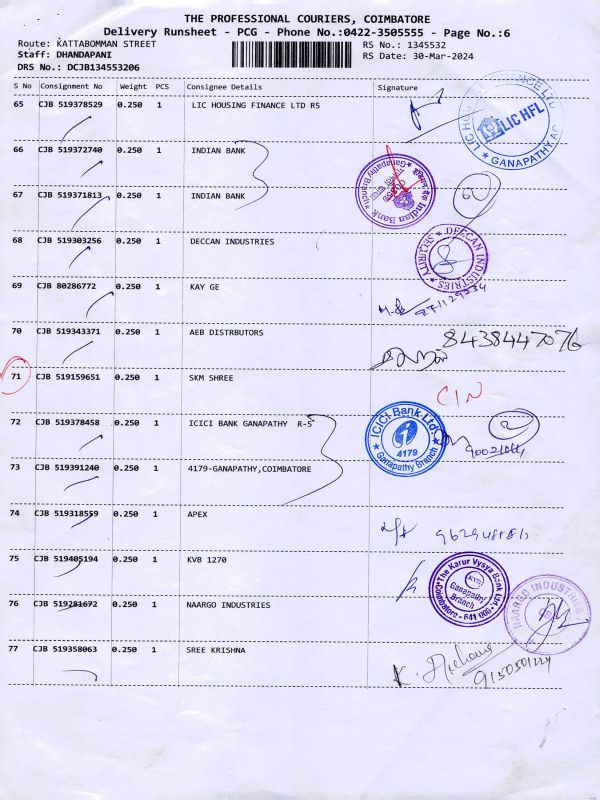 THE PROFESSIONAL COURIERS, COIMBATORE
Delivery Runsheet - PCG - Phone No.:0422-3505555 - Page No.:6
Route: KATTABOMMAN STREET
RS No.: 1345532
Staff: DHANDAPANI
RS Date: 30-Mar-2024
DRS No.: DCJB134553206
S No Consignment No Weight PCS Consignee Details Signature
65 CJB 519378529 0.250 1 LIC HOUSING FINANCE LTD RS
LIC HFL
GANAPATHY
66 CJB 519372740 0.250 1 INDIAN BANK
67 CJB 519371813 0.250 1 INDIAN BANK
Indian Bank
Ganapathy Branch
68 CJB 519303256 0.250 1 DECCAN INDUSTRIES
DECCAN INDUSTRIES
SECURITY
69 CJB 80286772 0.250 1 KAY GE
70 CJB 519343371 0.250 1 AEB DISTRBUTORS
8438447076
71 CJB 519159651 0.250 1 SKM SHREE
CIN
72 CJB 519378458 0.250 1 ICICI BANK GANAPATHY R-5
ICICI Bank Ltd.
4179
Ganapathy Branch
73 CJB 519391240 0.250 1 4179-GANAPATHY,COIMBATORE
74 CJB 519318559 0.250 1 APEX
75 CJB 519405194 0.250 1 KVB 1270
The Karur Vysya Bank Ltd
KVB
Ganapathy Branch
Coimbatore - 641 006
76 CJB 519281672 0.250 1 NAARGO INDUSTRIES
NAARGO INDUSTRIES
77 CJB 519358063 0.250 1 SREE KRISHNA